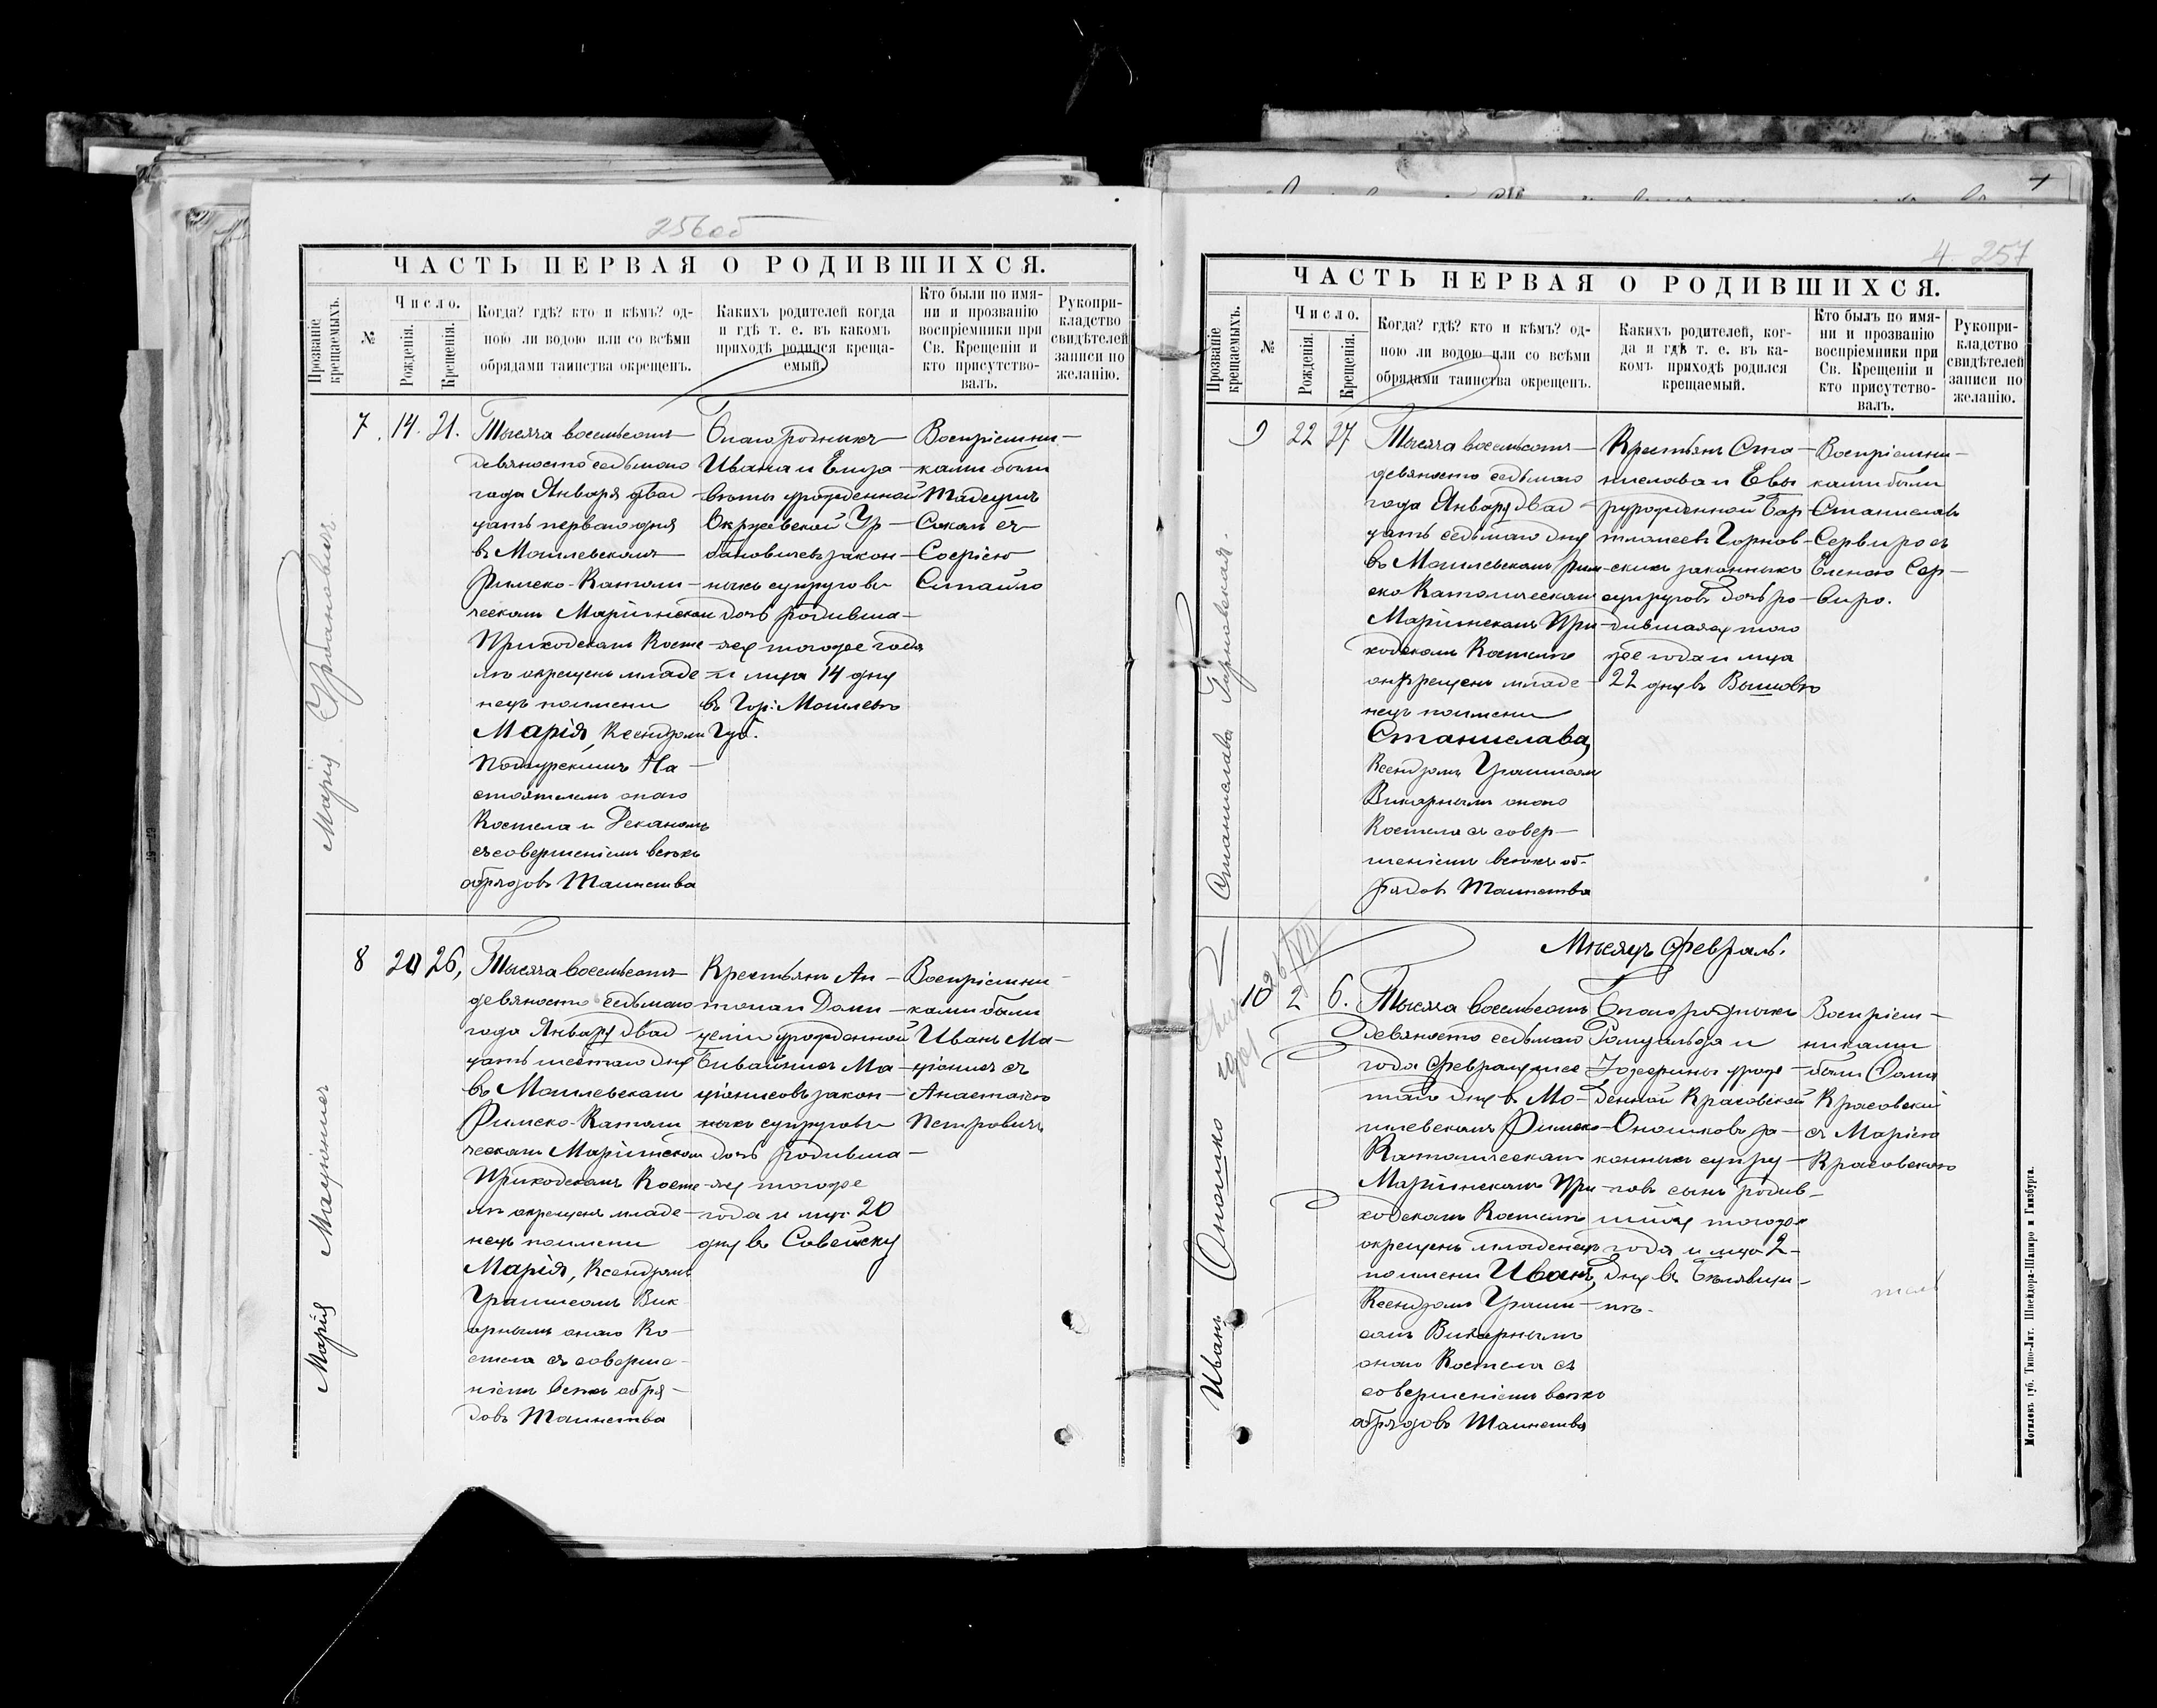 256об
ЧАСТЬ ПЕРВАЯ О РОДИВШИХСЯ.
Прозваніе крещаемыхъ.
№
Число.
Рожденія.
Крещенія.
Когда? гдѣ? кто и кѣмъ? од-
ною ли водою или со всѣми
обрядами таинства окрещенъ.
Какихъ родителей когда
и гдѣ т. е. въ какомъ
приходѣ родился креща-
емый.
Кто были по имя-
ни и прозванію
воспріемники при
Св. Крещеніи и
кто присутство-
валъ.
Рукопри-
кладство
свидѣтелей
записи по
желанію.
Марія Урбановичъ.
7. 14. 21.
Тысяча восемьсотъ
девяносто седьмаго
года Января двад
цать перваго дня
въ Могилевскомъ
Римско-Католи-
ческомъ Маріинскомъ
Приходскомъ Косте
лѣ окрещенъ младе
нецъ по имени
Марія, Ксендзомъ
На-
стоятелемъ онаго
Костела и Деканомъ
съ совершеніемъ всѣхъ
обрядовъ Таинства
Благородныхъ
Ивана и Елиза-
веты урожденной
Окржевской Ур-
бановичевъ закон-
ныхъ супруговъ
дочь родивша-
яся тогоже года
и м-ца 14 дня
въ Гор: Могилевѣ
Губ.
Воспріемни-
ками были
Тадеушъ
Сокол съ
Софіею
Стайло
Марія Мацюнисъ
8 20 26,
Тысяча восемьсотъ
девяносто седьмаго
года Января двад
цать шестаго дня
въ Могилевскомъ
Римско-Католи
ческомъ Маріинскомъ
Приходскомъ Косте
лѣ окрещенъ младе-
нецъ по имени
Марія, Ксендзомъ
Вик
арнымъ онаго Ко-
стела съ соверше-
ніемъ всѣхъ обря-
довъ Таинства
Крестьянъ Ан-
тона и Доми-
целіи урожденной
Ма-
цюнисовъ закон-
ныхъ супруговъ
дочь родивша-
яся тогоже
года и м-ца 20
дня въ
Воспріемни-
ками были
Иванъ Ма-
цюнисъ съ
Анастасіею
Петровичъ
4. 257
ЧАСТЬ ПЕРВАЯ О РОДИВШИХСЯ.
Прозваніе крещаемыхъ.
№
Число.
Рожденія.
Крещенія.
Когда? гдѣ? кто и кѣмъ? од-
ною ли водою или со всѣми
обрядами таинства окрещенъ.
Какихъ родителей, ког-
да и гдѣ т. е. въ ка-
комъ приходѣ родился
крещаемый.
Кто былъ по имя-
ни и прозванію
воспріемники при
Св. Крещеніи и
кто присутство-
валъ.
Рукопри-
кладство
свидѣтелей
записи по
желанію.
Станислава Горновская.
9 22 27
Тысяча восемьсотъ
девяносто седьмаго
года Января двад
цать седьмаго дня
въ Могилевскомъ Рим
ско Католическомъ
Маріинскомъ При
ходскомъ Костелѣ
окрещенъ младе-
нецъ по имени
Станислава,
Ксендзомъ
Викарнымъ онаго
Костела съ совер-
шеніемъ всѣхъ об-
рядовъ Таинства
Крестьянъ Ста-
нислава и Евы
урожденной Бар-
толмеевъ Горнов-
скихъ законныхъ
супруговъ дочь ро-
дившаяся того
же года и м-ца
22 дня въ
Воспріемни-
ками были
Станиславъ
Сервиро съ
Еленою Сер-
виро.
Мѣсяцъ Февраль.
Иванъ Оношко
10 2 6.
Тысяча восемьсотъ
девяносто седьмаго
года Февраля шес
таго дня въ Мо-
гилевскомъ Римско
Католическомъ
Маріинскомъ При
ходскомъ Костелѣ
окрещенъ младенецъ
по имени Иванъ,
Ксендзомъ
Викарнымъ
онаго Костела съ
совершеніемъ всѣхъ
обрядовъ Таинства
Благородныхъ
Ромуальда и
Юзефины урож-
денной Красовской
Оношковъ за-
конныхъ супру-
говъ сынъ родив-
шійся тогоже
года и м-ца 2-
дня въ Бѣлявщи-
нѣ.
Воспріем-
никами
были Фома
Красовскій
съ Маріею
Красовскою
Могилевъ губ. Типо-Лит. Шнейдора-Шапиро и Гинзбурга.